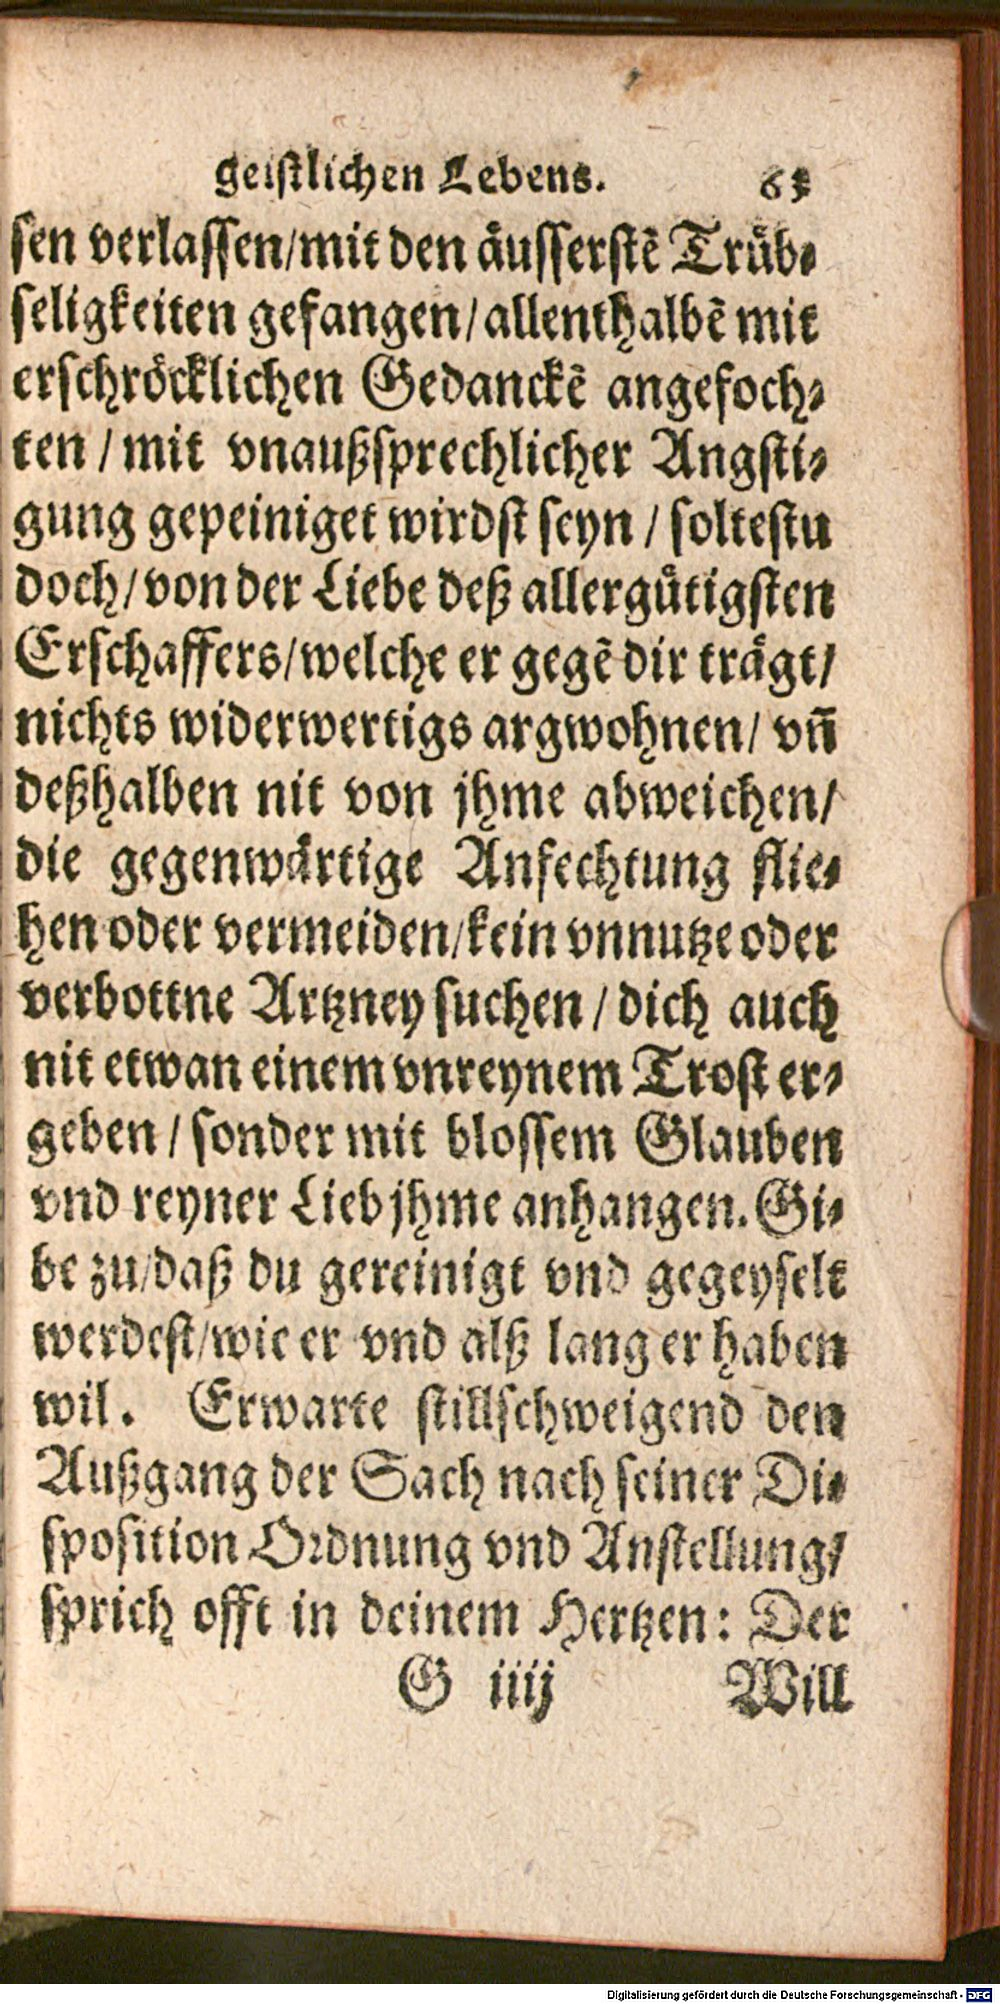 geistlichen Lebens. 63
sen verlassen/mit den äusserstē Trüb-
seligkeiten gefangen/allenthalbē mit
erschröcklichen Gedanckē angefoch-
ten/mit vnaußsprechlicher Angsti-
gung gepeiniget wirdst seyn/soltestu
doch/von der Liebe deß allergütigsten
Erschaffers/welche er gegē dir trägt/
nichts widerwertigs argwohnen/vn̄
deßhalben nit von jhme abweichen/
die gegenwärtige Anfechtung flie-
hen oder vermeiden/kein vnnutze oder
verbottne Artzney suchen/dich auch
nit etwan einem vnreynem Trost er-
geben/sonder mit blossem Glauben
vnd reyner Lieb jhme anhangen. Gi-
be zu/daß du gereinigt vnd gegeyselt
werdest/wie er vnd alß lang er haben
wil. Erwarte stillschweigend den
Außgang der Sach nach seiner Di-
sposition Ordnung vnd Anstellung/
sprich offt in deinem Hertzen: Der
G iiij Will
Digitalisierung gefördert durch die Deutsche Forschungsgemeinschaft - DFG